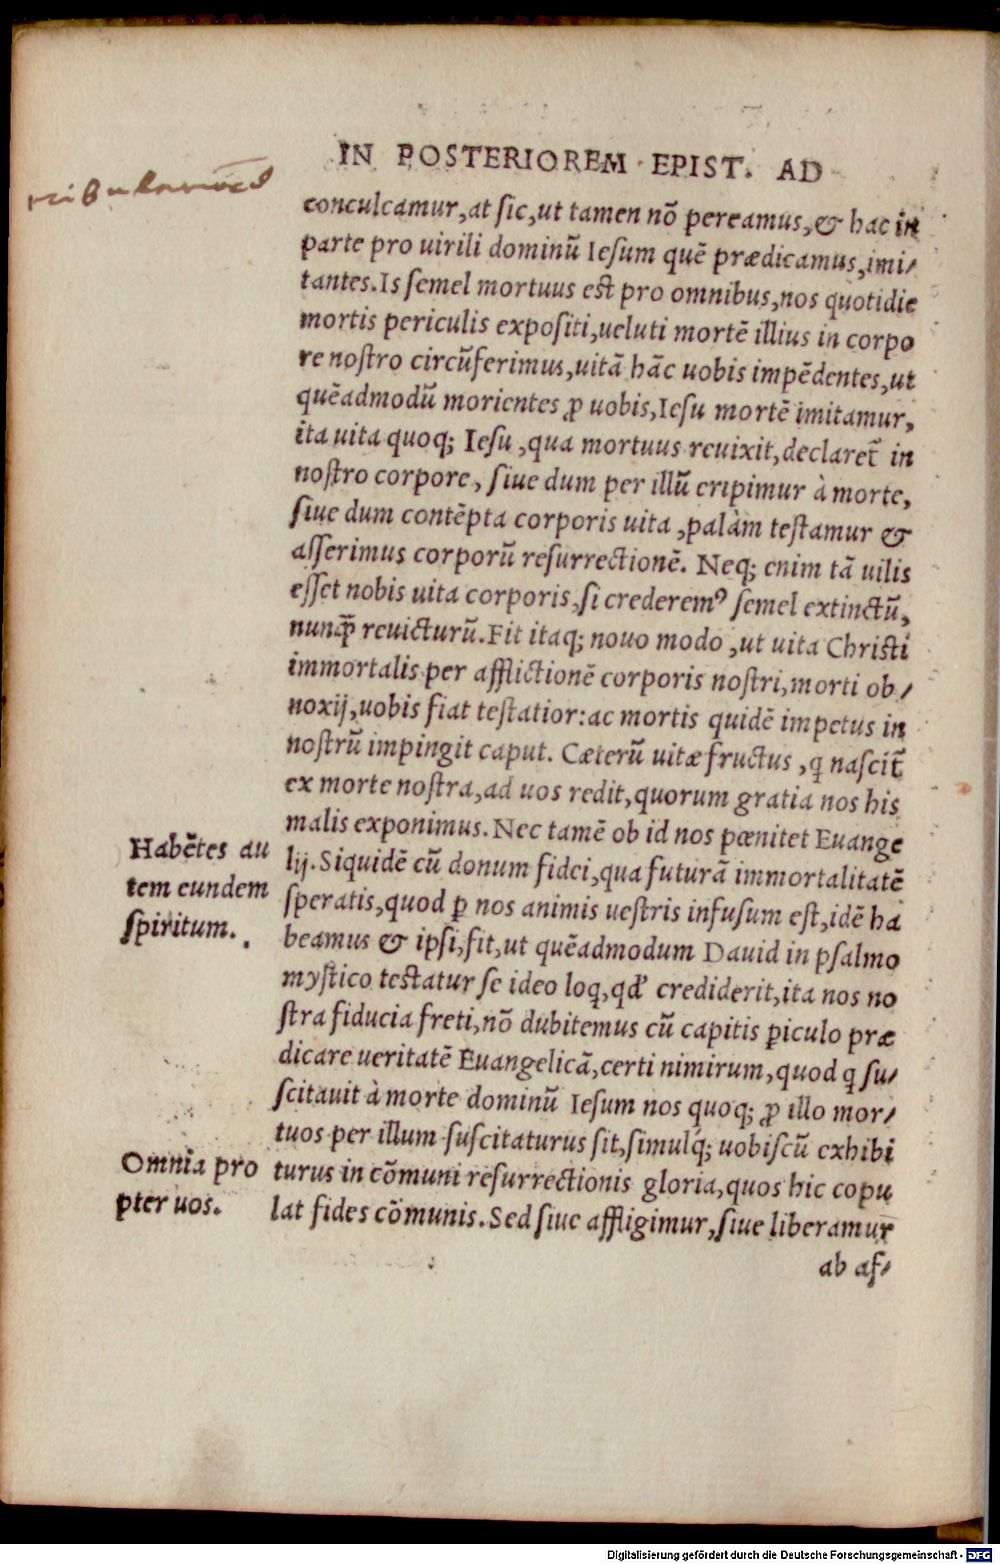 IN POSTERIOREM EPIST. AD
conculcamur, at sic, ut tamen nõ pereamus, & hac in
parte pro uirili dominũ Iesum quẽ prædicamus, imi/
tantes. Is semel mortuus est pro omnibus, nos quotidie
mortis periculis expositi, ueluti mortẽ illius in corpo
re nostro circũferimus, uitã hãc uobis impẽdentes, ut
quẽadmodũ morientes ꝓ uobis, Iesu mortẽ imitamur,
ita uita quoq; Iesu, qua mortuus reuixit, declaret̃ in
nostro corpore, siue dum per illũ eripimur à morte,
siue dum contẽpta corporis uita, palàm testamur &
asserimus corporũ resurrectionẽ. Neq; enim tã uilis
esset nobis uita corporis, si crederemꝰ semel extinctũ,
nunꝙ̃ reuicturũ. Fit itaq; nouo modo, ut uita Christi
immortalis per afflictionẽ corporis nostri, morti ob/
noxij, uobis fiat testatior: ac mortis quidẽ impetus in
nostrũ impingit caput. Cæterũ uitæ fructus, ꝗ nascit̃
ex morte nostra, ad uos redit, quorum gratia nos his
malis exponimus. Nec tamẽ ob id nos pœnitet Euange
lij. Siquidẽ cũ donum fidei, qua futurã immortalitatẽ
speratis, quod ꝑ nos animis uestris infusum est, idẽ ha
beamus & ipsi, fit, ut quẽadmodum Dauid in psalmo
mystico testatur se ideo loꝗ, qđ crediderit, ita nos no
stra fiducia freti, nõ dubitemus cũ capitis ꝑiculo præ
dicare ueritatẽ Euangelicã, certi nimirum, quod ꝗ su/
scitauit à morte dominũ Iesum nos quoq; ꝓ illo mor/
tuos per illum suscitaturus sit, simulq́; uobiscũ exhibi
turus in cõmuni resurrectionis gloria, quos hic copu
lat fides cõmunis. Sed siue affligimur, siue liberamur
ab af/
Habẽtes au
tem eundem
spiritum.
Omnia pro
pter uos.
Digitalisierung gefördert durch die Deutsche Forschungsgemeinschaft - DFG